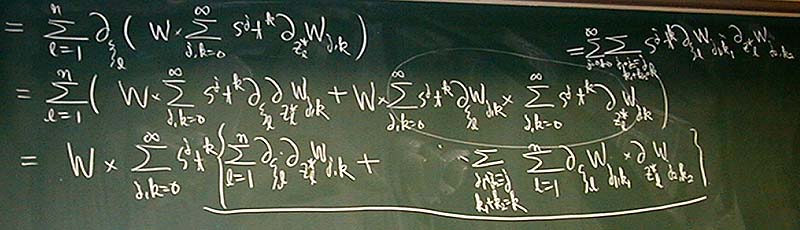 = \sum_{l=1}^{n} \partial_{\xi_l} ( W \times \sum_{j,k=0}^{\infty} s^j t^k \partial_{z_l^*} W_{j,k} )
= \sum_{j=0,k=0}^{\infty} \sum_{j_1+j_2=j, k_1+k_2=k} s^j t^k \partial_{\xi_l} W_{j_1,k_1} \partial_{z_l^*} W_{j_2,k_2}
= \sum_{l=1}^{n} ( W \times \sum_{j,k=0}^{\infty} s^j t^k \partial_{\xi_l} \partial_{z_l^*} W_{j,k} + W \times \sum_{j,k=0}^{\infty} s^j t^k \partial_{\xi_l} W_{j,k} \times \sum_{j,k=0}^{\infty} s^j t^k \partial_{z_l^*} W_{j,k} )
= W \times \sum_{j,k=0}^{\infty} s^j t^k \{ \sum_{l=1}^{n} \partial_{\xi_l} \partial_{z_l^*} W_{j,k} + \sum_{j_1+j_2=j, k_1+k_2=k} \sum_{l=1}^{n} \partial_{\xi_l} W_{j_1,k_1} \times \partial_{z_l^*} W_{j_2,k_2} \}